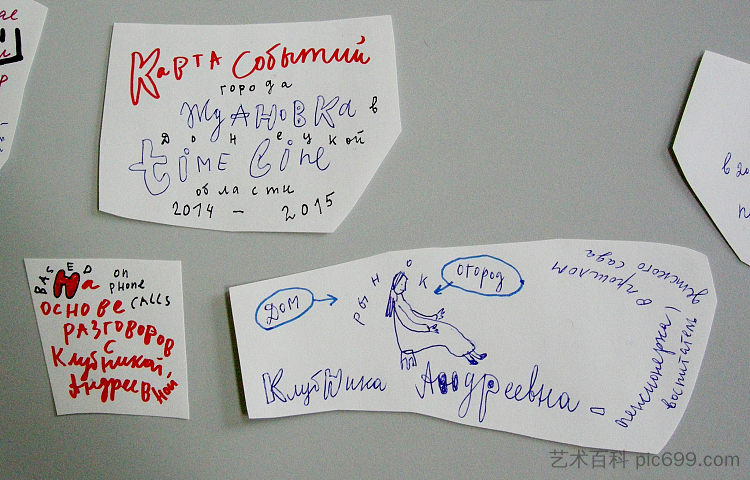 Карта событий
города
Ждановка в
Донецкой
time line
области
2014 – 2015
BASED on
PHONE
CALLS
На
основе
разговоров
с
Клубникой,
Андреевной
ДОМ
РЫНОК
ОГОРОД
Клубника Андреевна –
пенсионерка,
воспитатель
детского сада
в прошлом
в 20
艺术百科 pic699.com